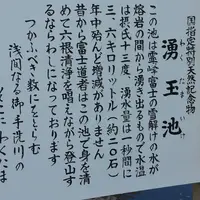 国指定特別天然記念物
湧玉池
わくたまいけ
この池は霊峰富士の雪解けの水が
熔岩の間から湧き出るもので水温
は摂氏十三度、湧水量は一秒間に
三、六キロリットル(約二〇石)
年中殆んど増減がありません
昔から富士道者はこの池で身を清
めて六根清浄を唱えながら登山す
るならわしになっております
つかふべき数にをとらむ
浅間なる御手洗川の